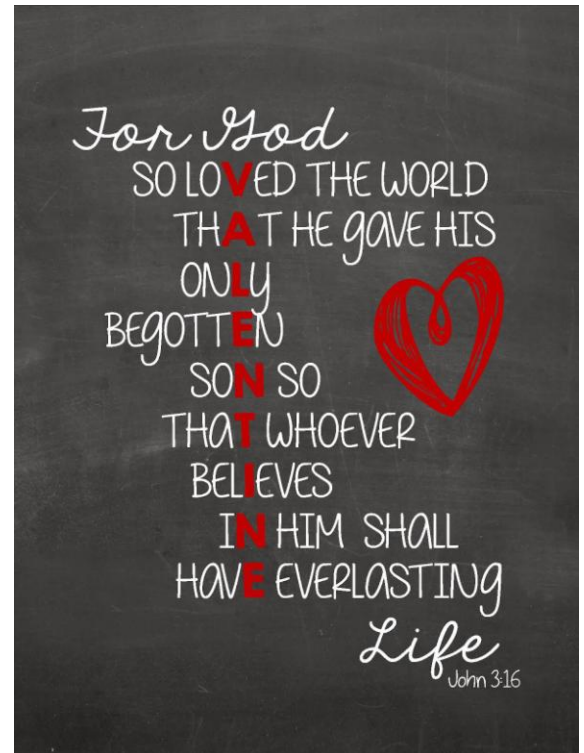 For God
SO LOVED THE WORLD
THAT HE gAVE HIS
ONLY
BEgOTTEN
SON SO
THAT WHOEVER
BELIEVES
IN HIM SHALL
HAVE EVERLASTINg
Life
John 3:16